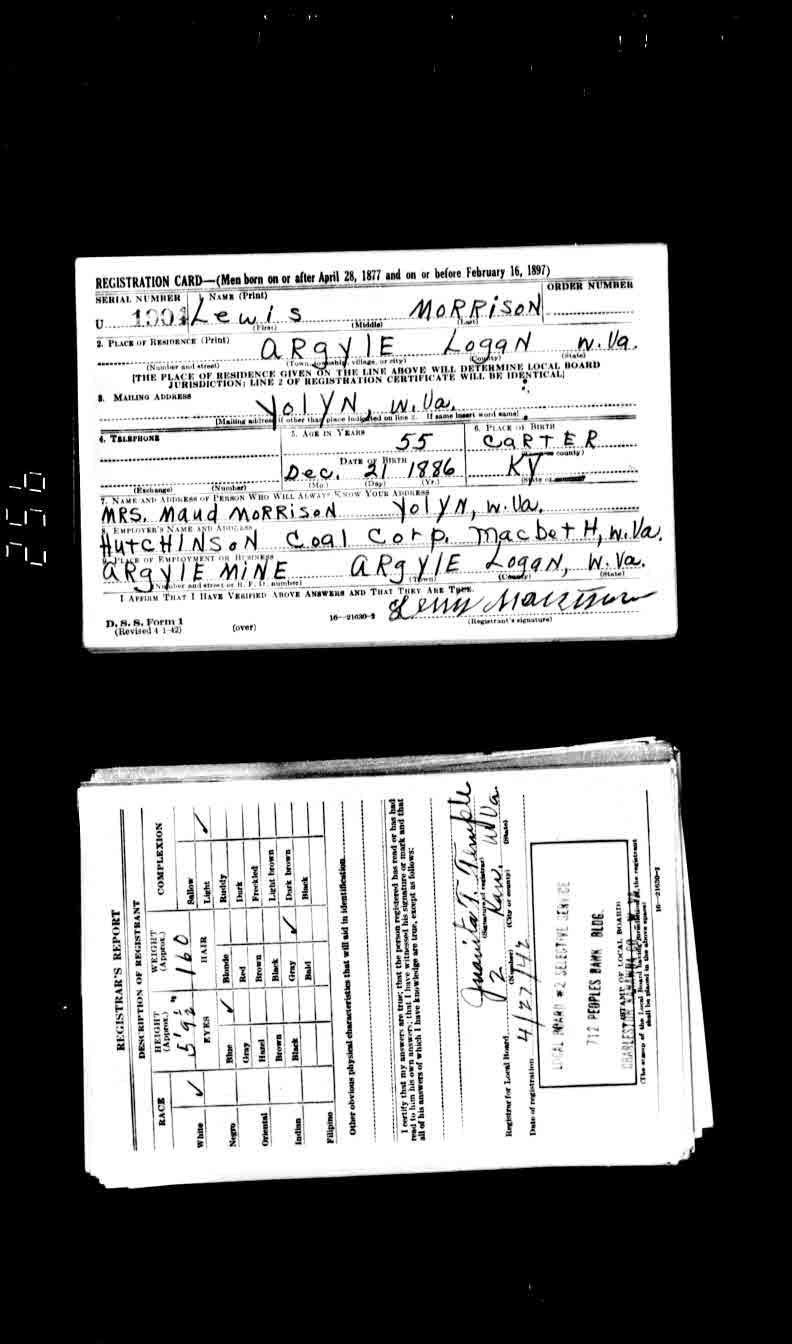 REGISTRATION CARD—(Men born on or after April 28, 1877 and on or before February 16, 1897)
SERIAL NUMBER NAME (Print) ORDER NUMBER
U 1901 Lewis MORRISON
(First) (Middle) (Last)
2. PLACE OF RESIDENCE (Print)
ARgylE LogaN W. Va.
(Number and street) (Town, township, village, or city) (County) (State)
[THE PLACE OF RESIDENCE GIVEN ON THE LINE ABOVE WILL DETERMINE LOCAL BOARD
JURISDICTION; LINE 2 OF REGISTRATION CERTIFICATE WILL BE IDENTICAL]
3. MAILING ADDRESS
YolYN, W. Va.
[Mailing address if other than place indicated on line 2. If same insert word same]
4. TELEPHONE 5. AGE IN YEARS 6. PLACE OF BIRTH
55 CARTER
DATE OF BIRTH (Town or county)
Dec. 21 1886 KY
(Exchange) (Number) (Mo.) (Day) (Yr.)
7. NAME AND ADDRESS OF PERSON WHO WILL ALWAYS KNOW YOUR ADDRESS
MRS. Maud MoRRisoN YolYN, W. Va.
8. EMPLOYER'S NAME AND ADDRESS
HutCHINSoN Coal Corp. MacbetH, W. Va.
9. PLACE OF EMPLOYMENT OR BUSINESS
ARgylE MiNE ARgylE LogaN, W. Va.
(Number and street or R. F. D. number) (Town) (County) (State)
I AFFIRM THAT I HAVE VERIFIED ABOVE ANSWERS AND THAT THEY ARE TRUE.
D. S. S. Form 1
(Revised 4-1-42) (over) 16—21630-2 (Registrant's signature)
256
REGISTRAR'S REPORT
DESCRIPTION OF REGISTRANT
RACE HEIGHT (Approx.) WEIGHT (Approx.) COMPLEXION
5' 9½" 160
White ✓ EYES HAIR Sallow
Light ✓
Negro Blue ✓ Blonde Ruddy
Gray Red Dark
Oriental Hazel Brown Freckled
Brown Black Light brown
Indian Black Gray ✓ Dark brown
Filipino Bald Black
Other obvious physical characteristics that will aid in identification
I certify that my answers are true; that the person registered has read or has had
read to him his own answers; that I have witnessed his signature or mark and that
all of his answers of which I have knowledge are true, except as follows:
Juanita F. Temple
(Signature of registrar)
Registrar for Local Board 2 Kan. W Va.
(Number) (City or county) (State)
Date of registration 4/27/42
LOCAL BOARD #2 SELECTIVE SERVICE
712 PEOPLES BANK BLDG.
CHARLESTON KANAWHA CO.
(STAMP OF LOCAL BOARD)
(The stamp of the Local Board having jurisdiction of the registrant
shall be placed in the above space)
16—21630-2